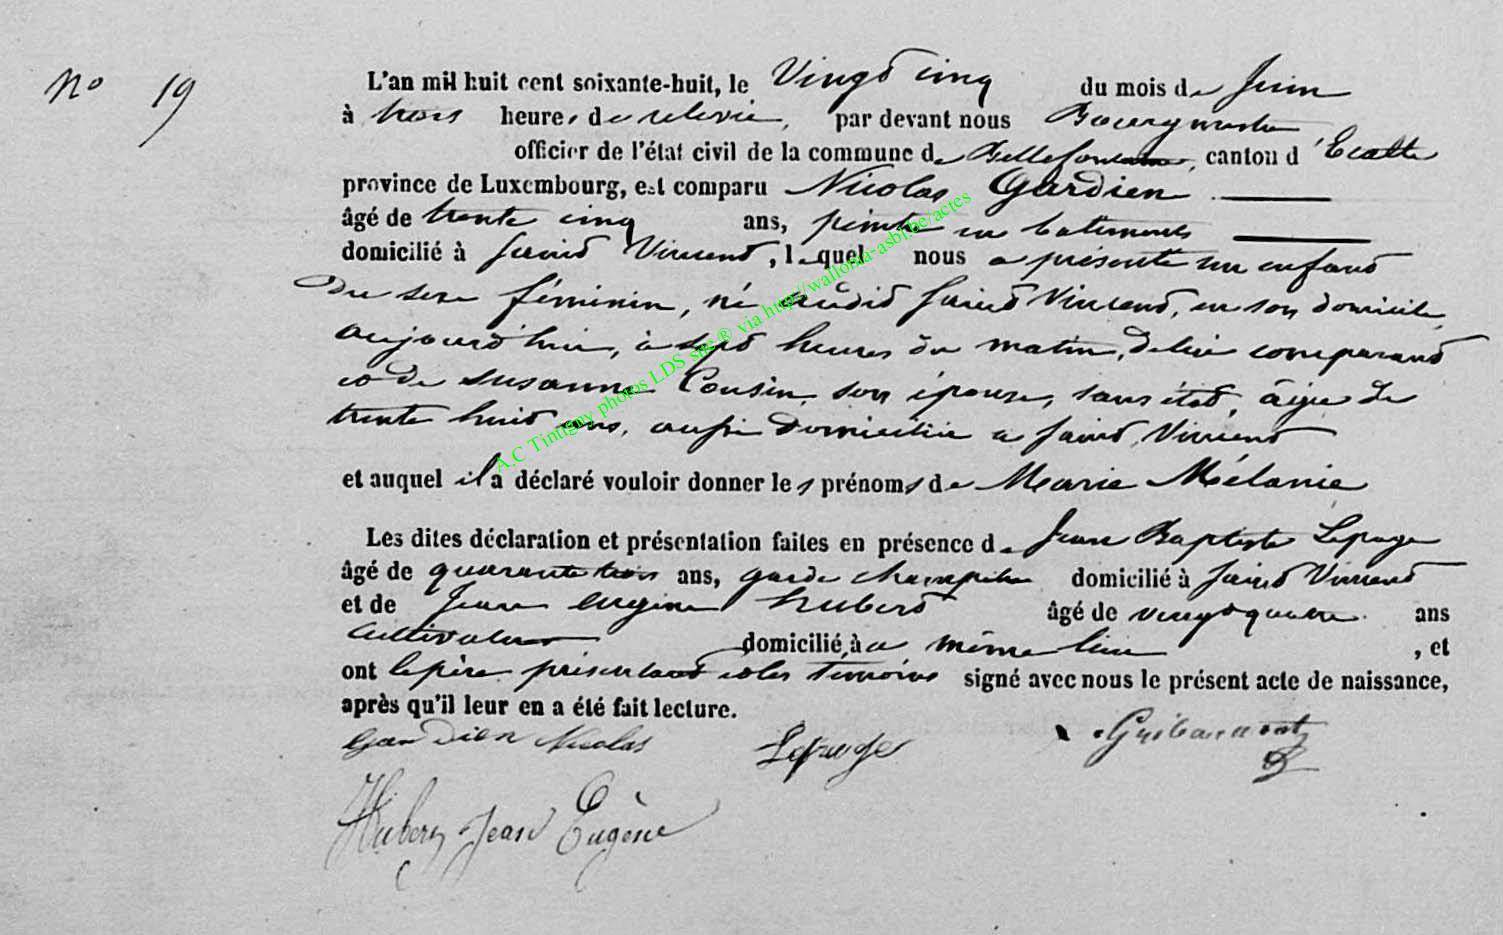 No 19
L'an mil huit cent soixante-huit, le Vingt cinq du mois de Juin
à trois heures de relevée, par devant nous Bourgmestre
officier de l'état civil de la commune de Bellefontaine, canton d'Etalle
province de Luxembourg, est comparu Nicolas Gardien
âgé de trente cinq ans, peintre en batiments
domicilié à Saint Vincent, lequel nous a présenté un enfant
du sexe féminin, né audit Saint Vincent, en son domicile,
aujourd'hui, à sept heures du matin, de lui comparant
et de Susanne Cousin, son épouse, sans état, âgée de
trente huit ans, aussi domiciliée a Saint Vincent
et auquel il a déclaré vouloir donner les prénoms de Marie Mélanie
Les dites déclaration et présentation faites en présence de Jean Baptiste Lepage
âgé de quarante trois ans, garde champêtre domicilié à Saint Vincent
et de Jean Eugène Hubert âgé de vingt quatre ans
Cultivateur domicilié, à même lieu, et
ont le père présentant et les témoins signé avec nous le présent acte de naissance,
après qu'il leur en a été fait lecture.
Gardien Nicolas Lepage
Hubert Jean Eugène
A.C Tintigny photos LDS snc ® via http://wallonia-asbl.be/actes